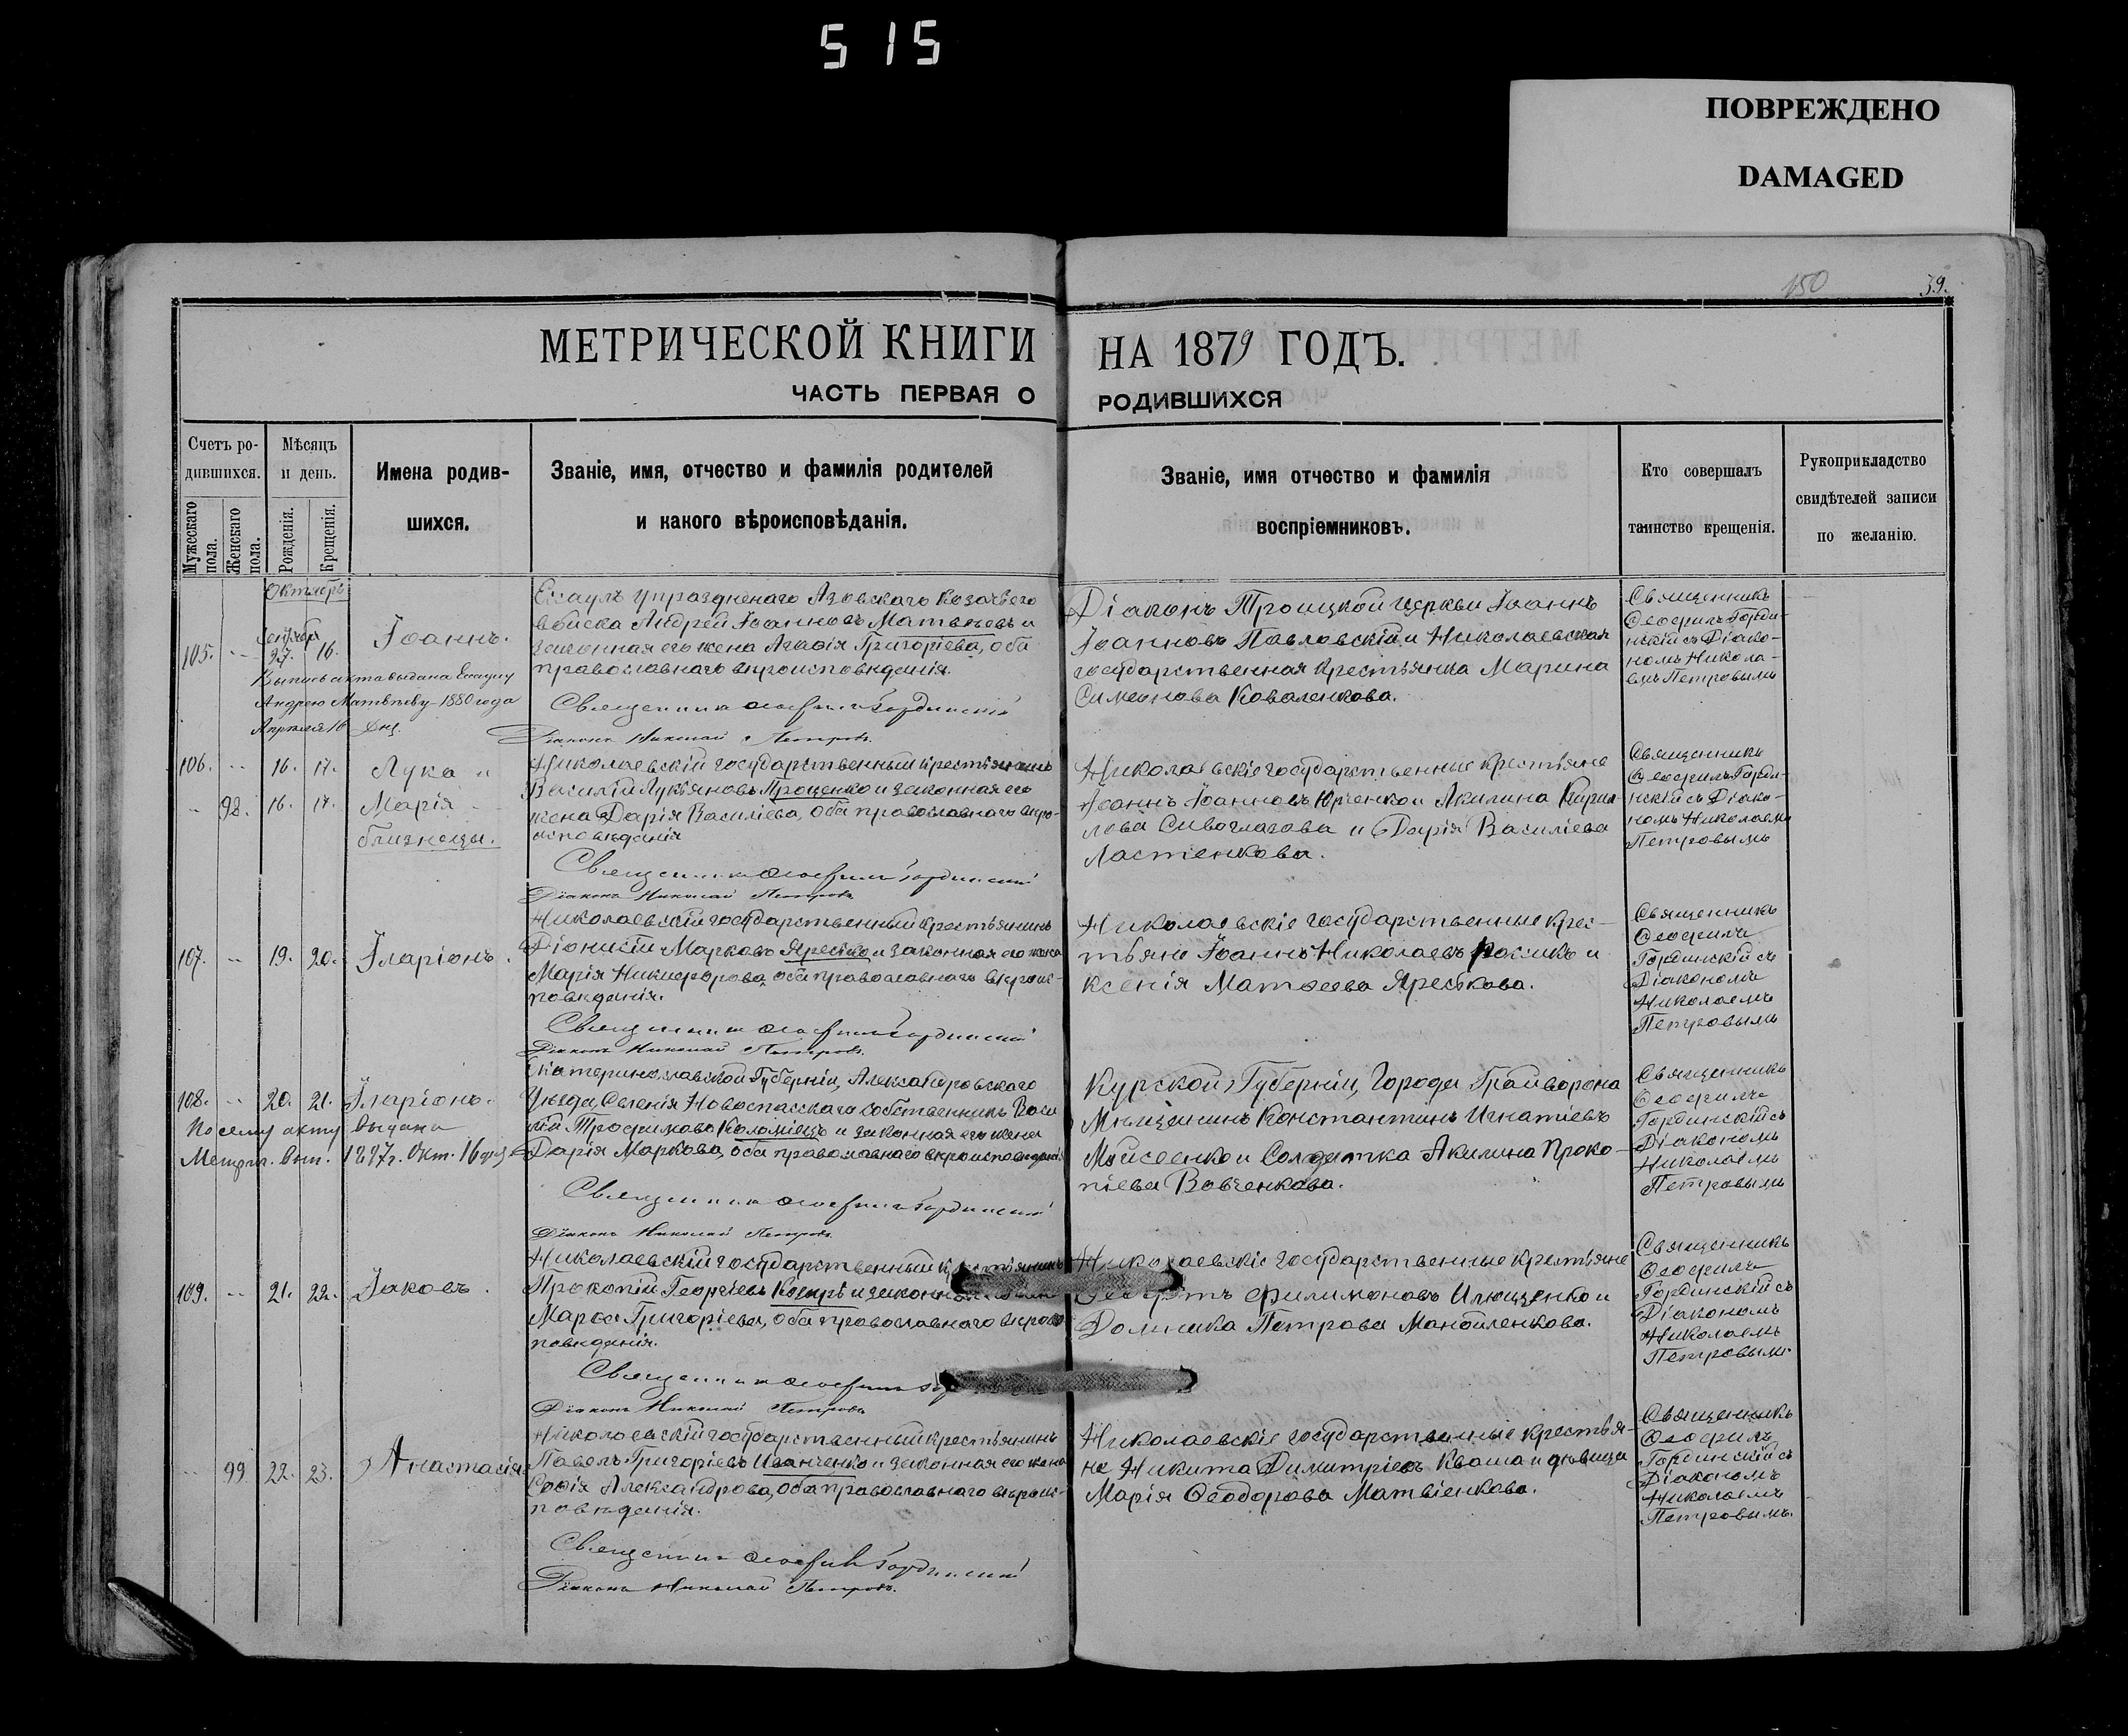 515
ПОВРЕЖДЕНО
DAMAGED
150
39.
МЕТРИЧЕСКОЙ КНИГИ НА 1879 ГОДЪ.
ЧАСТЬ ПЕРВАЯ О РОДИВШИХСЯ
Счетъ ро-
дившихся.
Мужескаго пола.
Женскаго пола.
Мѣсяцъ
и день.
Рожденія.
Крещенія.
Имена родив-
шихся.
Званіе, имя, отчество и фамилія родителей
и какого вѣроисповѣданія.
Званіе, имя отчество и фамилія
воспріемниковъ.
Кто совершалъ
таинство крещенія.
Рукоприкладство
свидѣтелей записи
по желанію.
Октябрь
Сентября
105. 27. 16.
Іоаннъ.
Выпись акта выдана Есаулу
Андрею Матвѣеву 1880 года
Апрѣля 16 дня.
Есаулъ упраздненаго Азовскаго козачьего
войска Андрей Іоанновъ Матвѣевъ и
законная его жена Агаѳія Григоріева, оба
православнаго вѣроисповѣданія.
Священникъ Ѳеофилъ Гординскій
Діаконъ Николай Петровъ.
Діаконъ Троицкой церкви Іоаннъ
Іоанновъ Павловскій и Николаевская
государственная крестьянка Марина
Симеонова Коваленкова.
Священникъ
Ѳеофилъ Горди-
нскій съ Діако-
номъ Никола-
емъ Петровымъ
106. 16. 17.
Лука и
98. 16. 17.
Марія
близнецы.
Николаевскій государственный крестьянинъ
Василій Лукьяновъ Проценко и законная его
жена Дарія Василіева, оба православнаго вѣро-
исповѣданія
Священникъ Ѳеофилъ Гординскій
Діаконъ Николай Петровъ
Николаевскіе государственные крестьяне
Іоаннъ Іоанновъ Юрченко и Акилина Кирил-
лова Сивоглазова и Дарія Василіева
Ластенкова.
Священникъ
Ѳеофилъ Горди-
нскій съ Діако-
номъ Николаемъ
Петровымъ
107. 19. 20.
Іларіонъ.
Николаевскій государственный крестьянинъ
Діонисій Марковъ Яресько и законная его жена
Марія Никифорова, оба православнаго вѣроис-
повѣданія.
Священникъ Ѳеофилъ Гординскій
Діаконъ Николай Петровъ.
Николаевскіе государственные крес-
тьяне Іоаннъ Николаевъ и
Ксенія Матѳеева Яреськова.
Священникъ
Ѳеофилъ
Гординскій съ
Діакономъ
Николаемъ
Петровымъ
108. 20. 21.
Іларіонъ.
По сему акту выдана
Метрич. вып. 1897г. Окт. 16 дня
Екатеринославской Губерніи, Александровскаго
Уѣзда, Селенія Новоспасскаго собственникъ Васи
лій Трофимовъ Коломіецъ и законная его жена
Дарія Маркова, оба православнаго вѣроисповѣданія.
Священникъ Ѳеофилъ Гординскій
Діаконъ Николай Петровъ.
Курской Губерніи, Города Грайворона
Мѣщанинъ Константинъ Игнатіевъ
Мойсеенко и Солдатка Акилина Проко-
піева Вовченкова.
Священникъ
Ѳеофилъ
Гординскій съ
Діакономъ
Николаемъ
Петровымъ
109. 21. 22.
Іаковъ.
Николаевскій государственный крестьянинъ
Прокопій Георгіевъ Косирь и законная
Марѳа Григоріева, оба православнаго вѣроис
повѣданія.
Священникъ Ѳеофилъ
Діаконъ Николай Петровъ
Николаевскіе государственные крестьяне
Филимоновъ Илющенко и
Домника Петрова Манойленкова.
Священникъ
Ѳеофилъ
Гординскій съ
Діакономъ
Николаемъ
Петровымъ.
99. 22. 23.
Анастасія
Николаевскій государственный крестьянинъ
Павелъ Григоріевъ Иванченко и законная его жена
Софія Александрова, оба православнаго вѣроис-
повѣданія.
Священникъ Ѳеофилъ Гординскій
Діаконъ Николай Петровъ.
Николаевскіе государственные крестья-
не Никита Димитріевъ Кваша и дѣвица
Марія Ѳеодорова Матвіенкова.
Священникъ
Ѳеофилъ
Гординскій съ
Діакономъ
Николаемъ
Петровымъ.